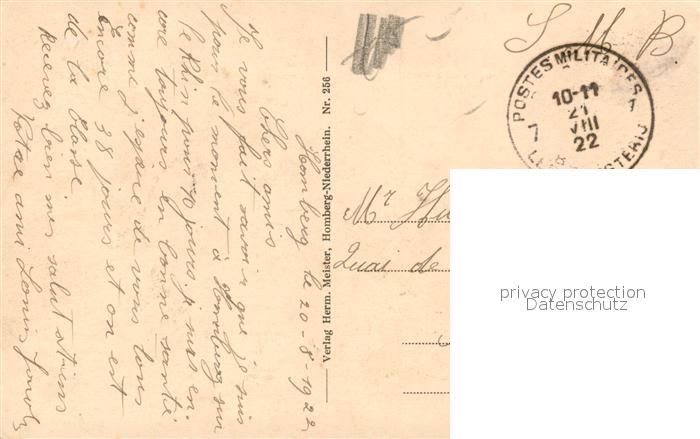 Homberg le 20-8-1922
Chers amis
Je vous fait savoir que je suis
pour le moment à Homberg sur
le Rhin pour 10 jours. je suis en-
core toujours en bonne santé
comme j'espère de vous tous
Encore 38 jours et on est
de la Classe
Recevez bien mes salutations
Votre ami Louis
Verlag Herm. Meister, Homberg-Niederrhein. Nr. 256
S M B
POSTES MILITAIRES
10-11
21
VIII
22
7 7
Mr
Quai de
privacy protection
Datenschutz